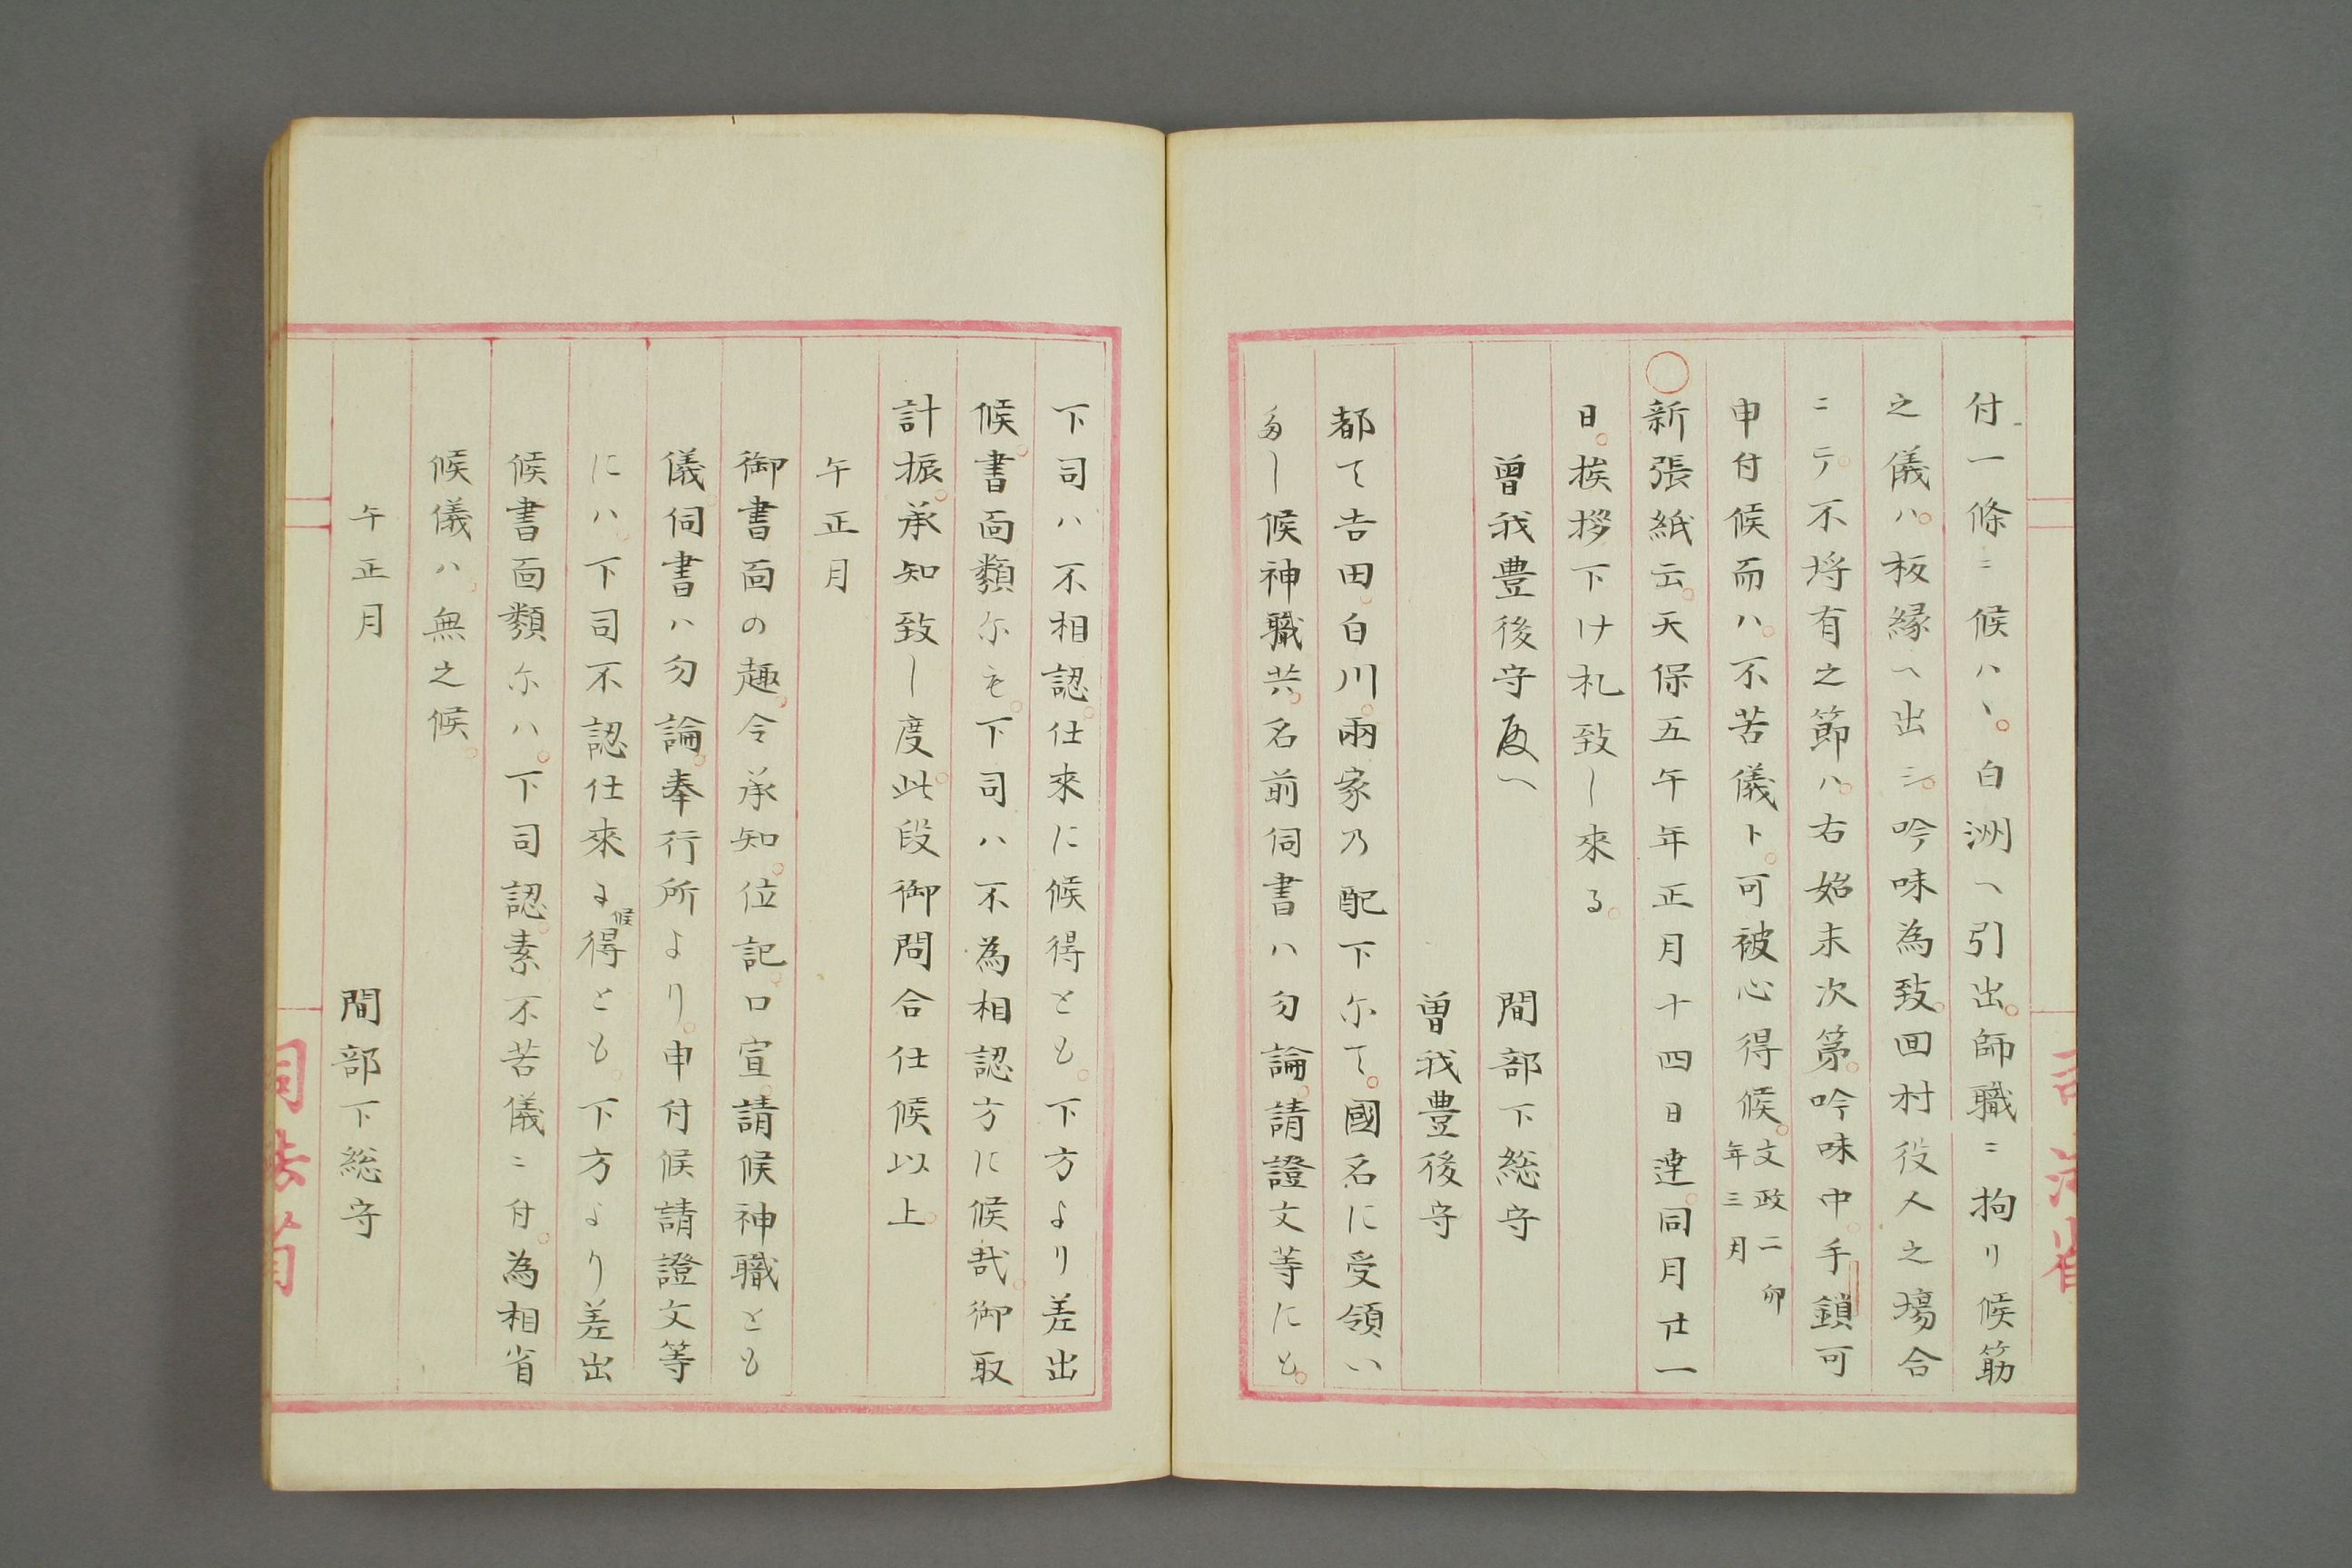 付一條ニ候ハヽ。白洲ヘ引出。師職ニ拘リ候筋
之儀ハ。板縁ヘ出シ。吟味為致。回村役人之場合
ニテ。不埓有之節ハ。右始末次第。吟味中。手鎖可
申付候而ハ。不苦儀ト。可被心得候。文政二卯
年三月
○新張紙云。天保五午年正月十四日達。同月廿一
日。挨拶下ケ札致し來る。
曽我豊後守殿ヘ
間部下総守
曽我豊後守
都て吉田。白川。兩家乃配下尓て。國名に受領い
多し候神職共。名前伺書ハ勿論。請證文等にも。
下司ハ不相認。仕來に候得とも。下方より差出
候。書面類尓も。下司ハ不為相認方に候哉。御取
計振。承知致し度。此段御問合仕候以上。
午正月
御書面の趣。令承知。位記。口宣。請候神職とも
儀。伺書ハ勿論。奉行所より。申付候請證文等
にハ。下司不認仕來よ候得とも。下方より差出
候書面類尓ハ。下司認。素不苦儀ニ付。為相省
候儀ハ。無之候。
午正月
間部下総守
司法省
司法省